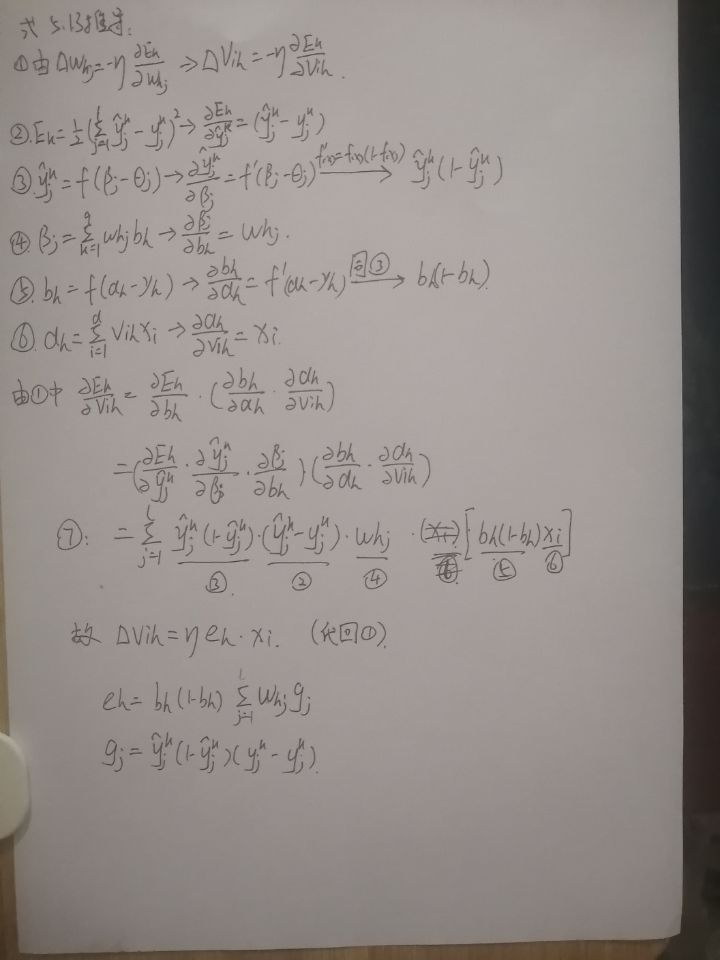 式 5.13推导:
① 由 Δwhj=-η ∂Ek/∂whj ⇒ ΔVih=-η ∂Ek/∂Vih.
② Ek=½(∑_{j=1}^{l} ŷj^k - yj^k)² → ∂Ek/∂ŷj^k = (ŷj^k - yj^k)
③ ŷj^k = f(βj-θj) → ∂ŷj^k/∂βj = f'(βj-θj) —f'(x)=f(x)(1-f(x))→ ŷj^k(1-ŷj^k)
④ βj=∑_{h=1}^{q} whj bh → ∂βj/∂bh = whj.
⑤ bh=f(αh-γh) → ∂bh/∂αh = f'(αh-γh) —同③→ bh(1-bh)
⑥ αh=∑_{i=1}^{d} Vih xi → ∂αh/∂Vih = xi.
由①中 ∂Ek/∂Vih = ∂Ek/∂bh · (∂bh/∂αh · ∂αh/∂Vih)
=(∂Ek/∂ŷj^k · ∂ŷj^k/∂βj · ∂βj/∂bh)(∂bh/∂αh · ∂αh/∂Vih)
⑦: = ∑_{j=1}^{l} ŷj^k(1-ŷj^k)·(ŷj^k-yj^k)·whj · [bh(1-bh)xi]
③ ② ④ ⑤ ⑥
故 ΔVih=η eh·xi. (代回①).
eh= bh(1-bh) ∑_{j=1}^{l} whj gj
gj= ŷj^k(1-ŷj^k)(yj^k-yj^k).